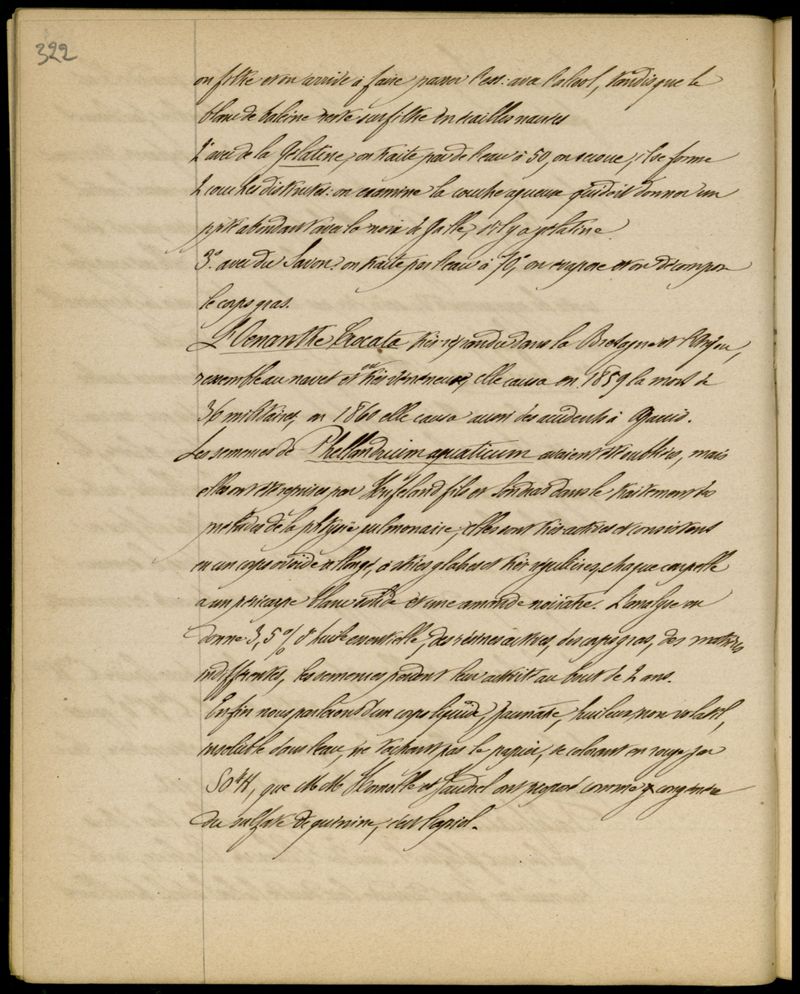 322
on filtre et on arrive à faire passer l'est: avec l'alcool, tandis que le
blanc de baleine reste sur filtre en écailles nacrées
2° avec de la Gelatine, on traite par de l'eau à 50, on secoue, il se forme
2 couches distinctes: on examine la couche aqueuse qui doit donner un
pité abondant avec la noix de Galle, s'il y a gelatine.
3° avec du Savon: on traite par l'eau à 70°, on evapore et on décompose
le corps gras.
L'Oenanthe Crocata très répandue dans la Bretagne et l'Anjou,
ressemble au navet et est très vénéneuse, elle causa en 1859 la mort de
36 militaires, en 1860 elle causa aussi des accidents à
Les semences de Phellandrium aquaticum avaient été oubliées, mais
elles ont été reprises par Hufeland fils et dans le traitement des
maladies de la phtysie pulmonaire, elles sont très actives et consistent
en un corps ovoïde allongé, à stries glabres et très régulières, chaque coupelle
a un péricarpe blanc solide et une amande noirâtre. L'analyse en
donne 3,5% d'huile essentielle, des résines actives, des corps gras, des matières
indifférentes, les semences perdent leur activité au bout de 2 ans.
Enfin nous parlerons d'un corps liquide, jaunâtre, huileux, non volatil,
insoluble dans l'eau, ne tachant pas le papier, se colorant en rouge par
SO³H, que M M Homolle et ont proposé comme congénère
du sulfate de quinine, c'est l'apiol.